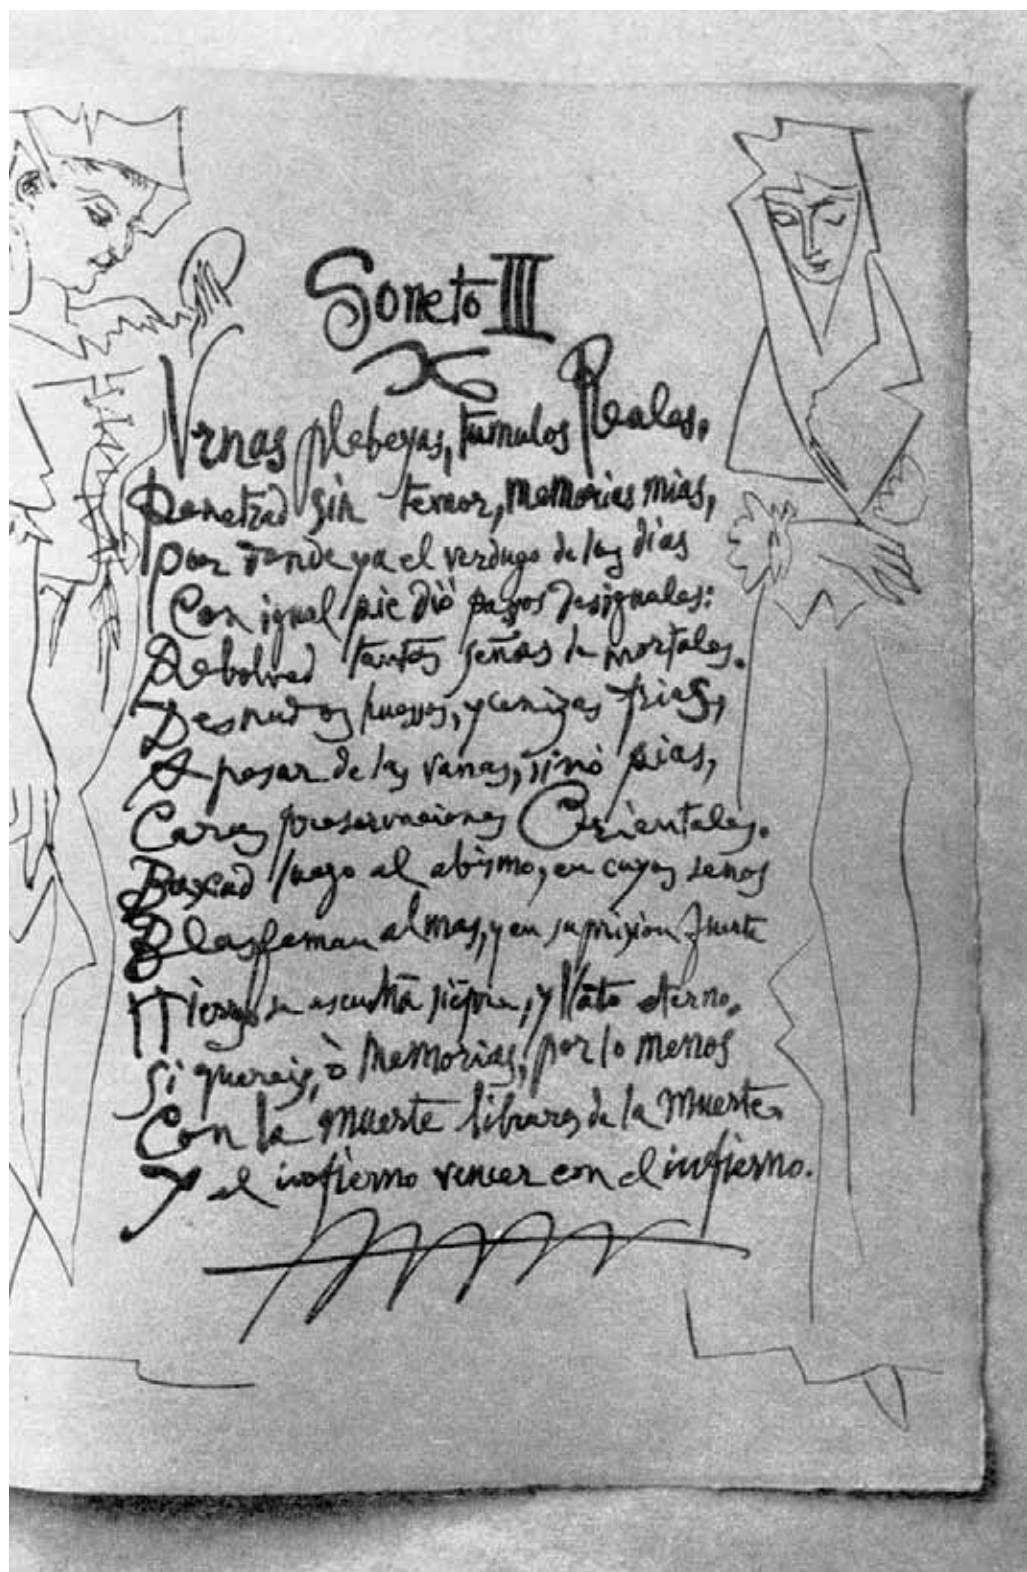 Soneto III
Vrnas plebeyas, tumulos Reales,
Penetrad sin temor, memorias mias,
Por donde ya el verdugo de los dias
Con igual pie dió pasos desiguales:
Rebolved tantas señas de mortales.
Desnudos huessos, y cenizas frias,
A pesar de las vanas, sinó pias,
Caras preservaciones Orientales.
Baxad luego al abismo, en cuyos senos
Blasfeman almas, y en su prixion fuerte
Hierros se escuchã siẽpre, y llãto eterno.
Si quereis, ò memorias, por lo menos
Con la muerte libraros de la muerte.
Y el infierno vencer con el infierno.